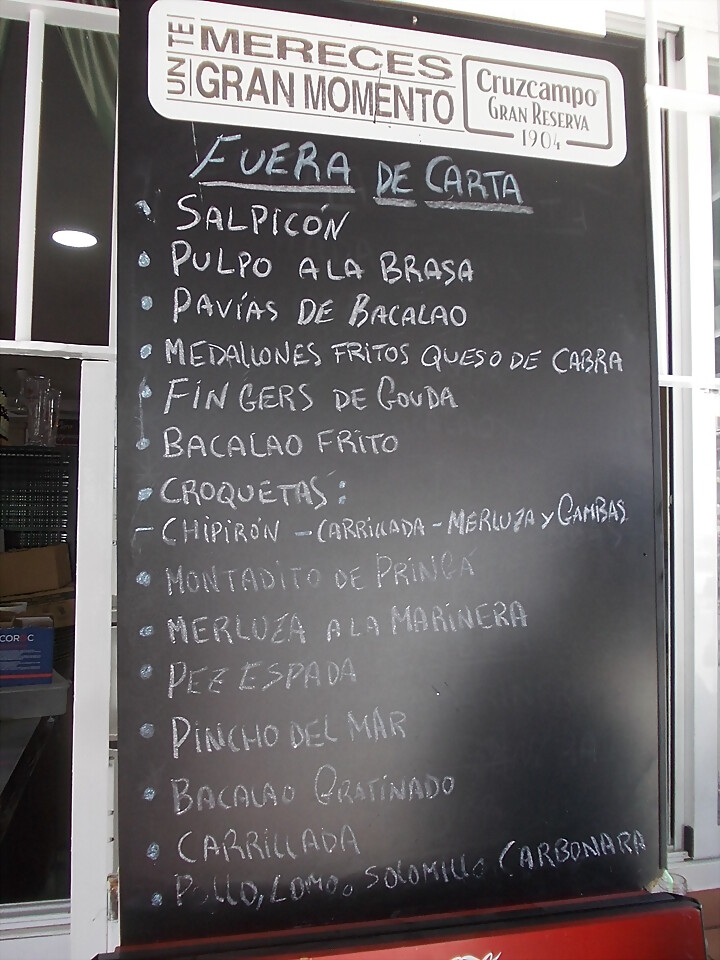 UN TE MERECES
GRAN MOMENTO
Cruzcampo
GRAN RESERVA
1904
FUERA DE CARTA
SALPICÓN
PULPO A LA BRASA
PAVÍAS DE BACALAO
MEDALLONES FRITOS QUESO DE CABRA
FINGERS DE GOUDA
BACALAO FRITO
CROQUETAS:
- CHIPIRÓN - CARRILLADA - MERLUZA y GAMBAS
MONTADITO DE PRINGÁ
MERLUZA A LA MARINERA
PEZ ESPADA
PINCHO DEL MAR
BACALAO GRATINADO
CARRILLADA
POLLO, LOMO, SOLOMILLO CARBONARA